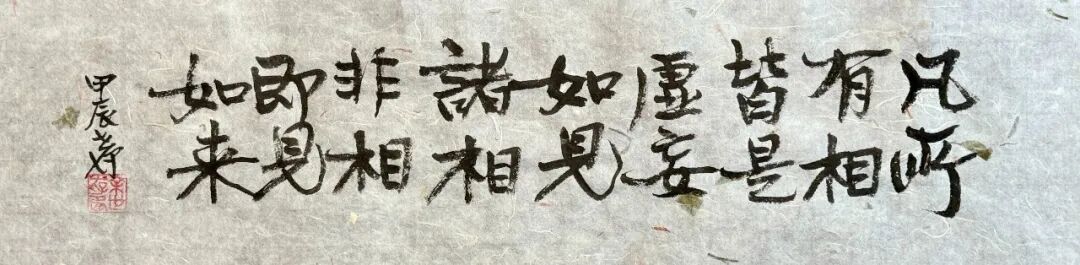 凡所
有相
皆是
虚妄
如見
諸相
非相
即見
如来
甲辰